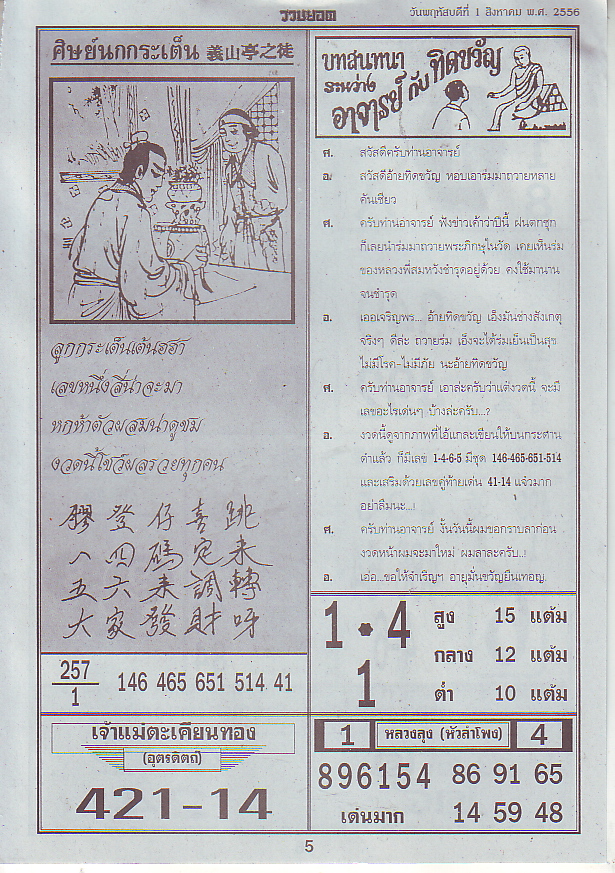 รวมยอด
วันพฤหัสบดีที่ 1 สิงหาคม พ.ศ. 2556
ศิษย์นกกระเต็น 義山亭之徒
ลูกกระเต็นเต้นฮฮา
เลขหนึ่งสี่น่าจะมา
หกห้าตัวผสมน่าดูชม
งวดนี้โชว์ผลรวยทุกคน
登仔喜跳
八四碼定來
五六來調轉
大家發財呀
257
1
146 465 651 514 41
เจ้าแม่ตะเคียนทอง
(อุตรดิตถ์)
421-14
บทสนทนา
ระหว่าง
อาจารย์ กับ ทิดขวัญ
ศ. สวัสดีครับท่านอาจารย์
อ. สวัสดีอ้ายทิดขวัญ หอบเอาร่มมาถวายหลาย
คันเชียว
ศ. ครับท่านอาจารย์ ฟังข่าวเค้าว่าปีนี้ ฝนตกชุก
ก็เลยนำร่มมาถวายพระภิกษุในวัด เคยเห็นร่ม
ของหลวงพี่สมหวังชำรุดอยู่ด้วย คงใช้มานาน
จนชำรุด
อ. เออเจริญพร... อ้ายทิดขวัญ เอ็งมันช่างสังเกตุ
จริงๆ ดีล่ะ ถวายร่ม เอ็งจะได้ร่มเย็นเป็นสุข
ไม่มีโรค-ไม่มีภัย นะอ้ายทิดขวัญ
ศ. ครับท่านอาจารย์ เอาล่ะครับว่าแต่งวดนี้ จะมี
เลขอะไรเด่นๆ บ้างล่ะครับ...?
อ. งวดนี้ดูจากภาพที่ไอ้แกละเขียนให้บนกระดาน
ดำแล้ว ก็มีเลข 1-4-6-5 มีชุด 146-465-651-514
และเสริมด้วยเลขคู่ท้ายเด่น 41-14 แจ๋วมาก
อย่าลืมนะ...!
ศ. ครับท่านอาจารย์ งั้นวันนี้ผมขอกราบลาก่อน
งวดหน้าผมจะมาใหม่ ผมลาละครับ..!
อ. เอ่อ...ขอให้จำเริญๆ อายุมั่นขวัญยืนเทอญ.
1 • 4
1
สูง 15 แต้ม
กลาง 12 แต้ม
ต่ำ 10 แต้ม
1 หลวงลุง (หัวลำโพง) 4
896154 86 91 65
เด่นมาก 14 59 48
5